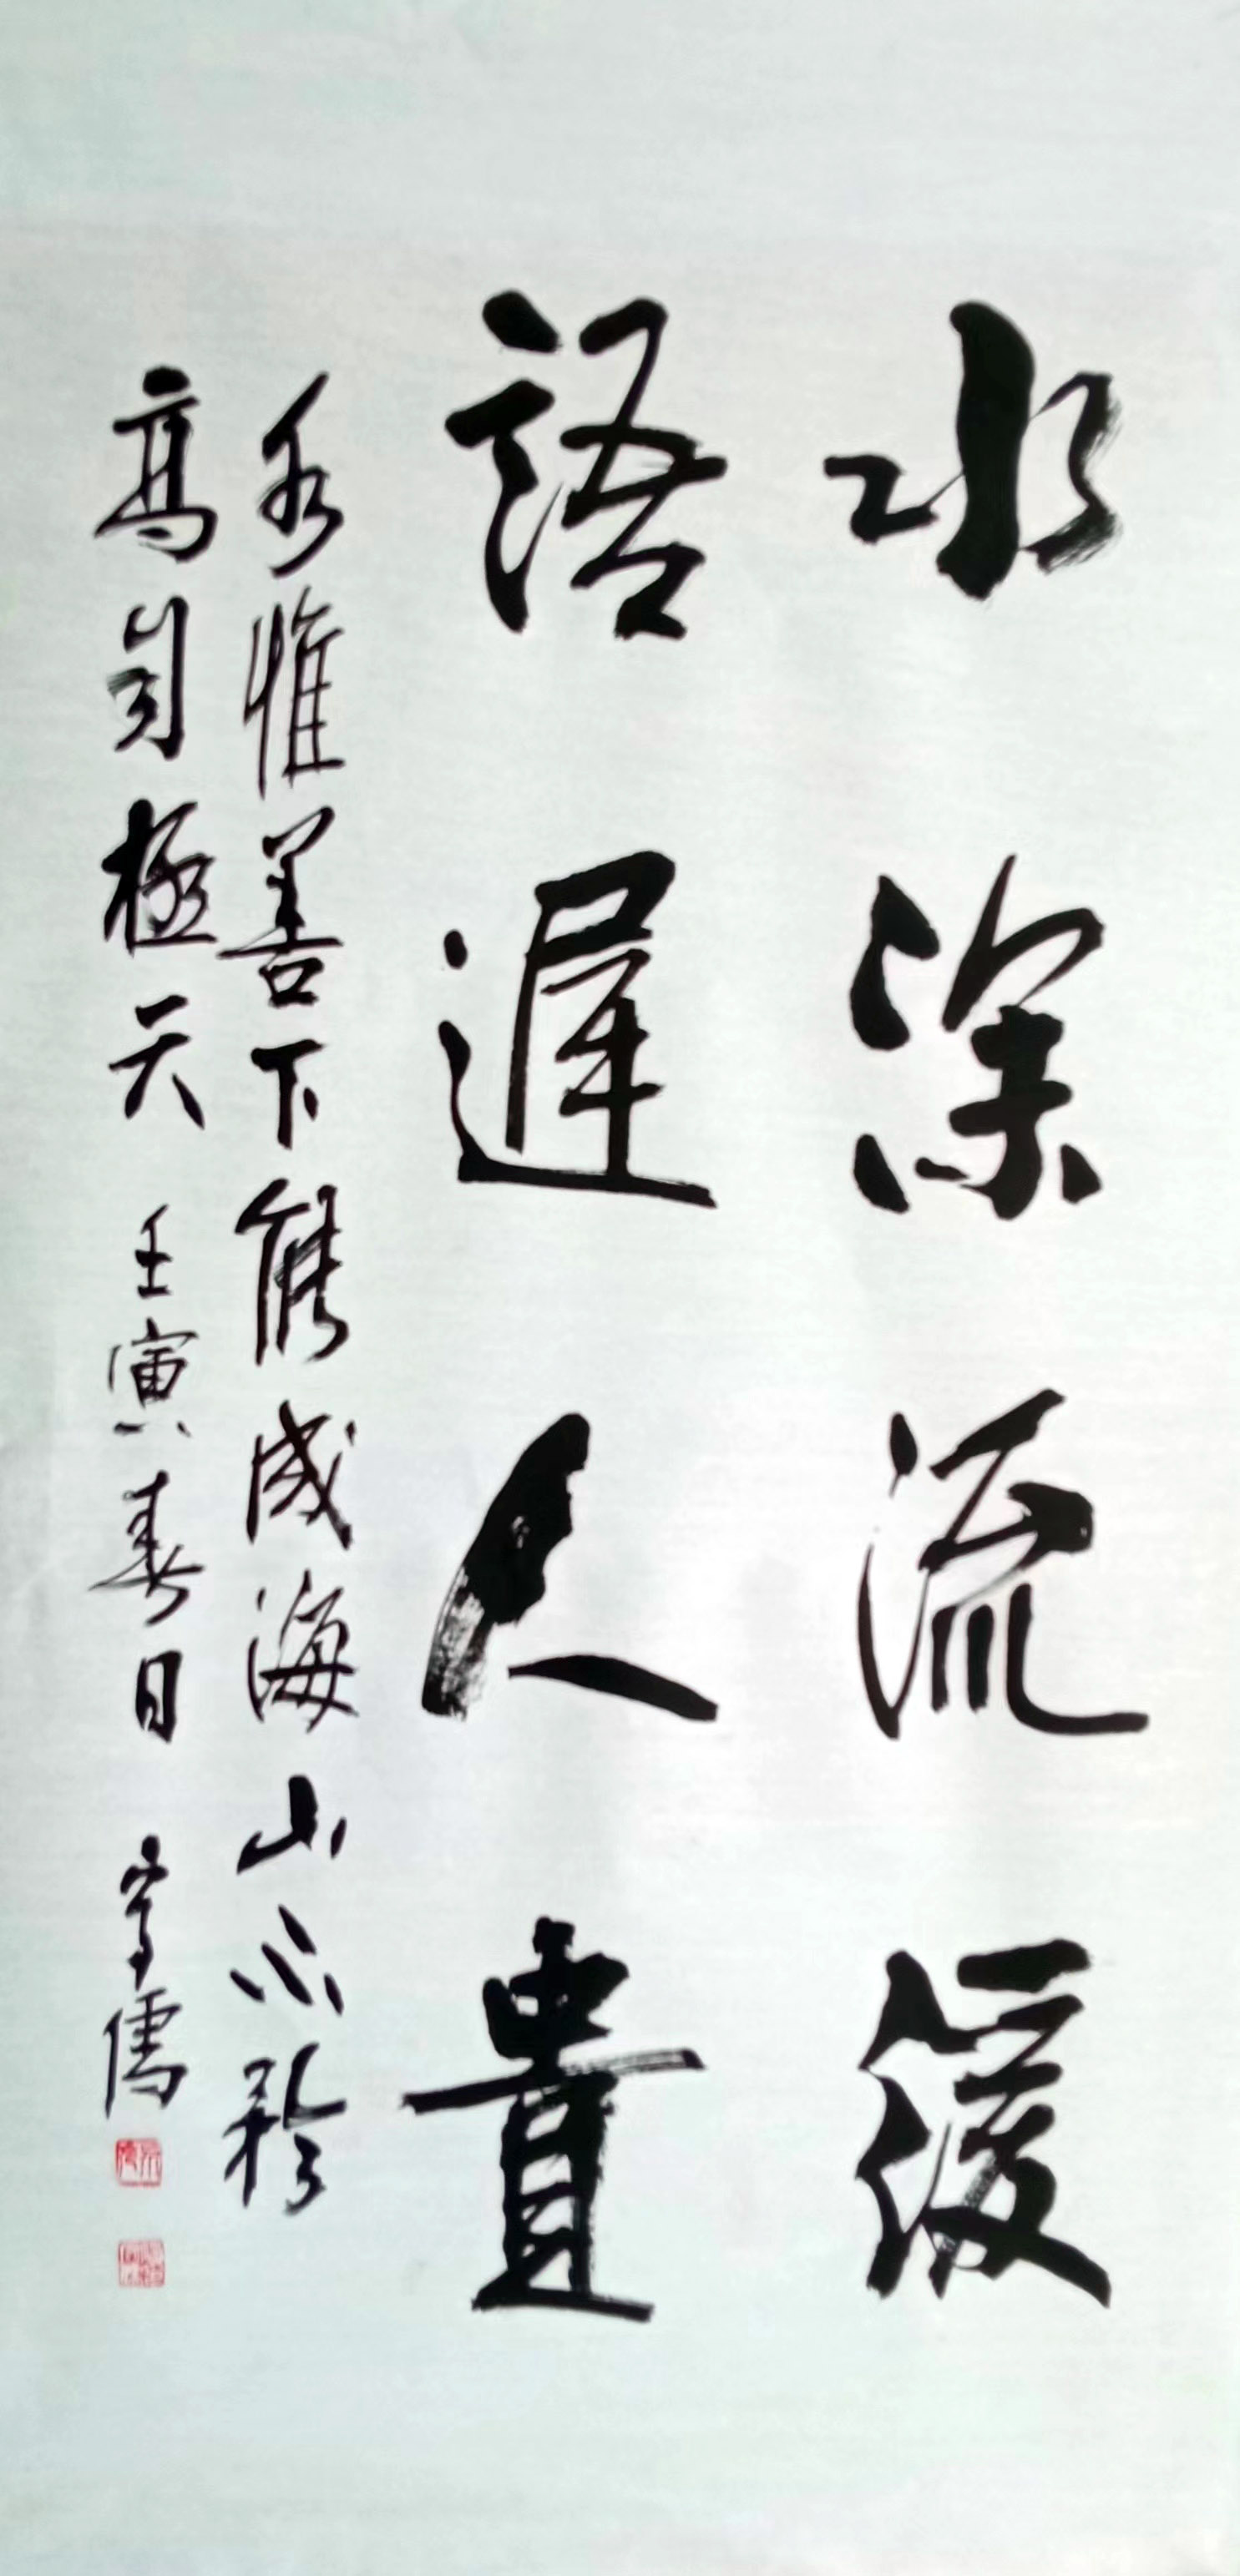 水深流缓
語遲人貴
水惟善下能成海山不矜
高自極天 壬寅春日 守儒